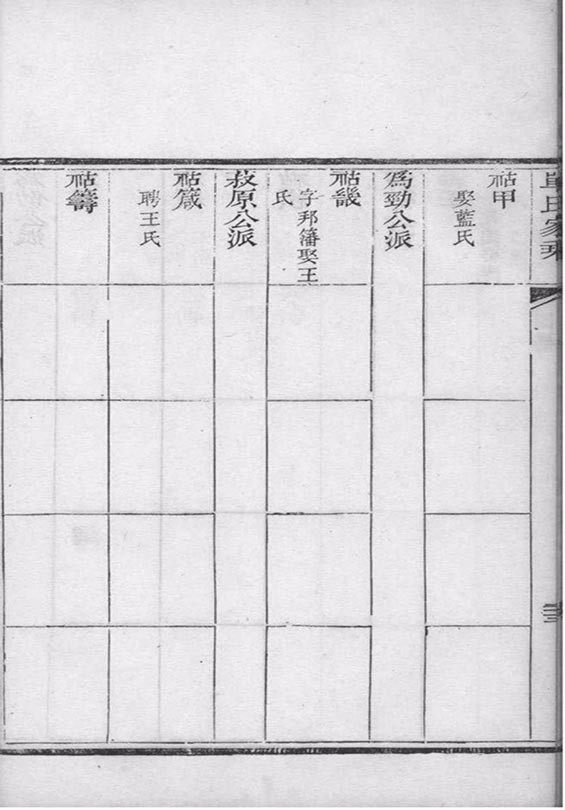 氏家乘
祜甲
娶藍氏
為勁公派
祜畿
字邦籓娶王
氏
菽原公派
祜箴
聘王氏
祜籌